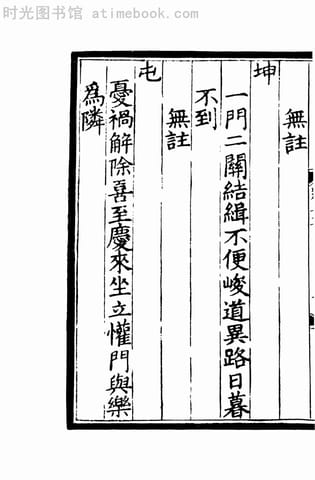 时光图书馆 - www.atimebook.com
無註
坤
一門二關結緝不便峻道異路日暮
不到
無註
屯
憂禍解除喜至慶來坐立懽門與樂
為隣